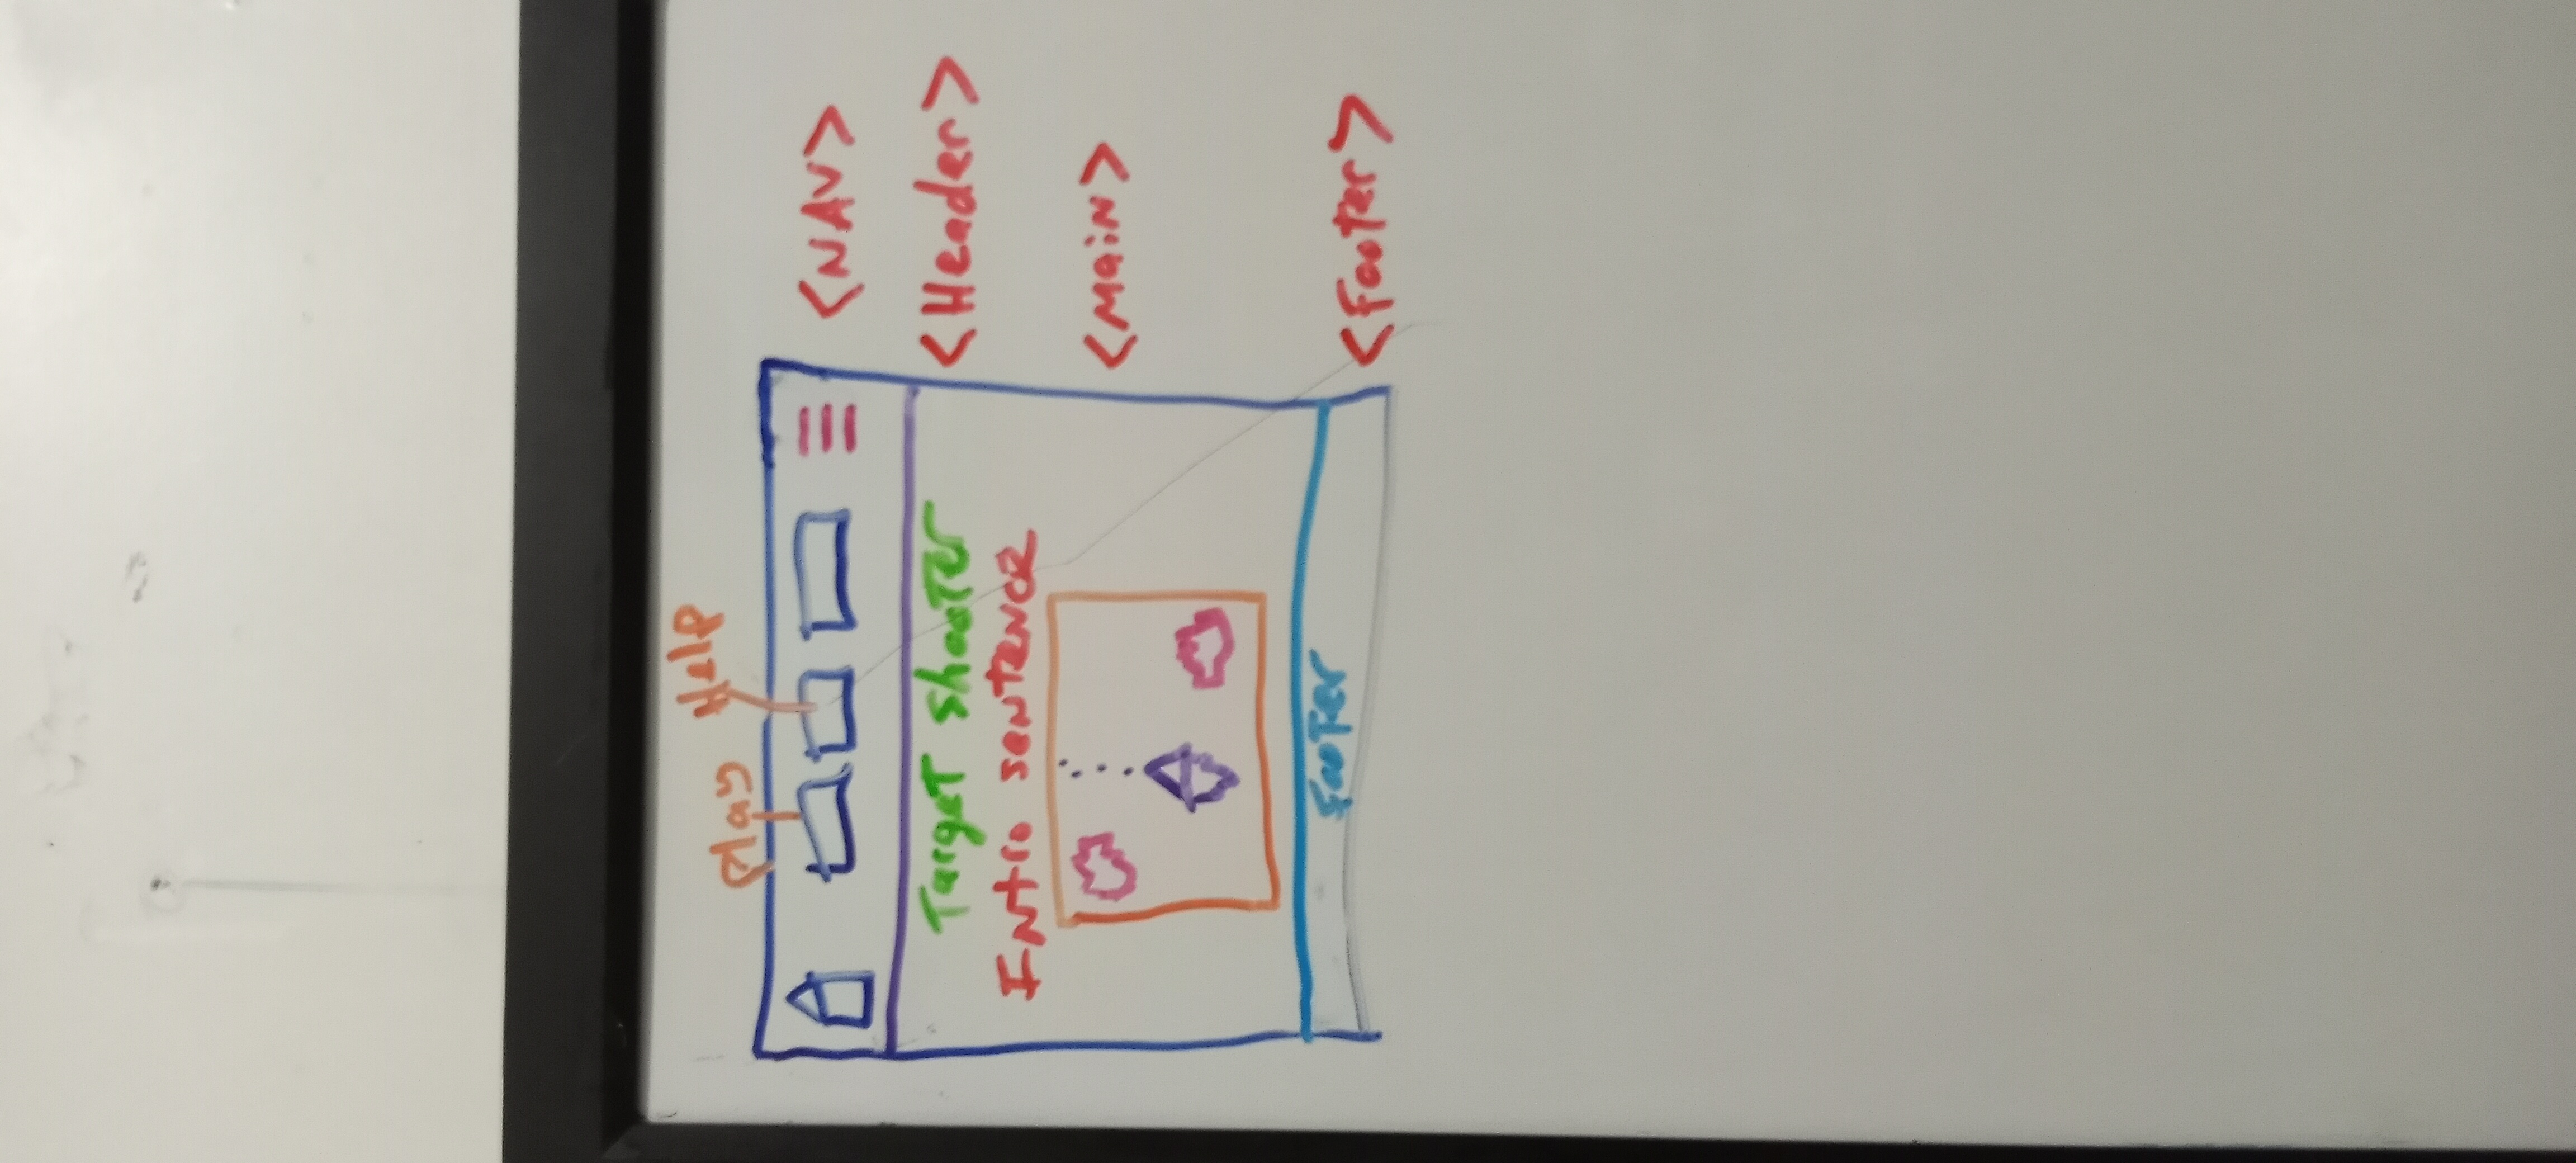 Help
Play
<NAV>
Target Shooter
<Header>
Intro sentence
<Main>
Footer
<Footer>